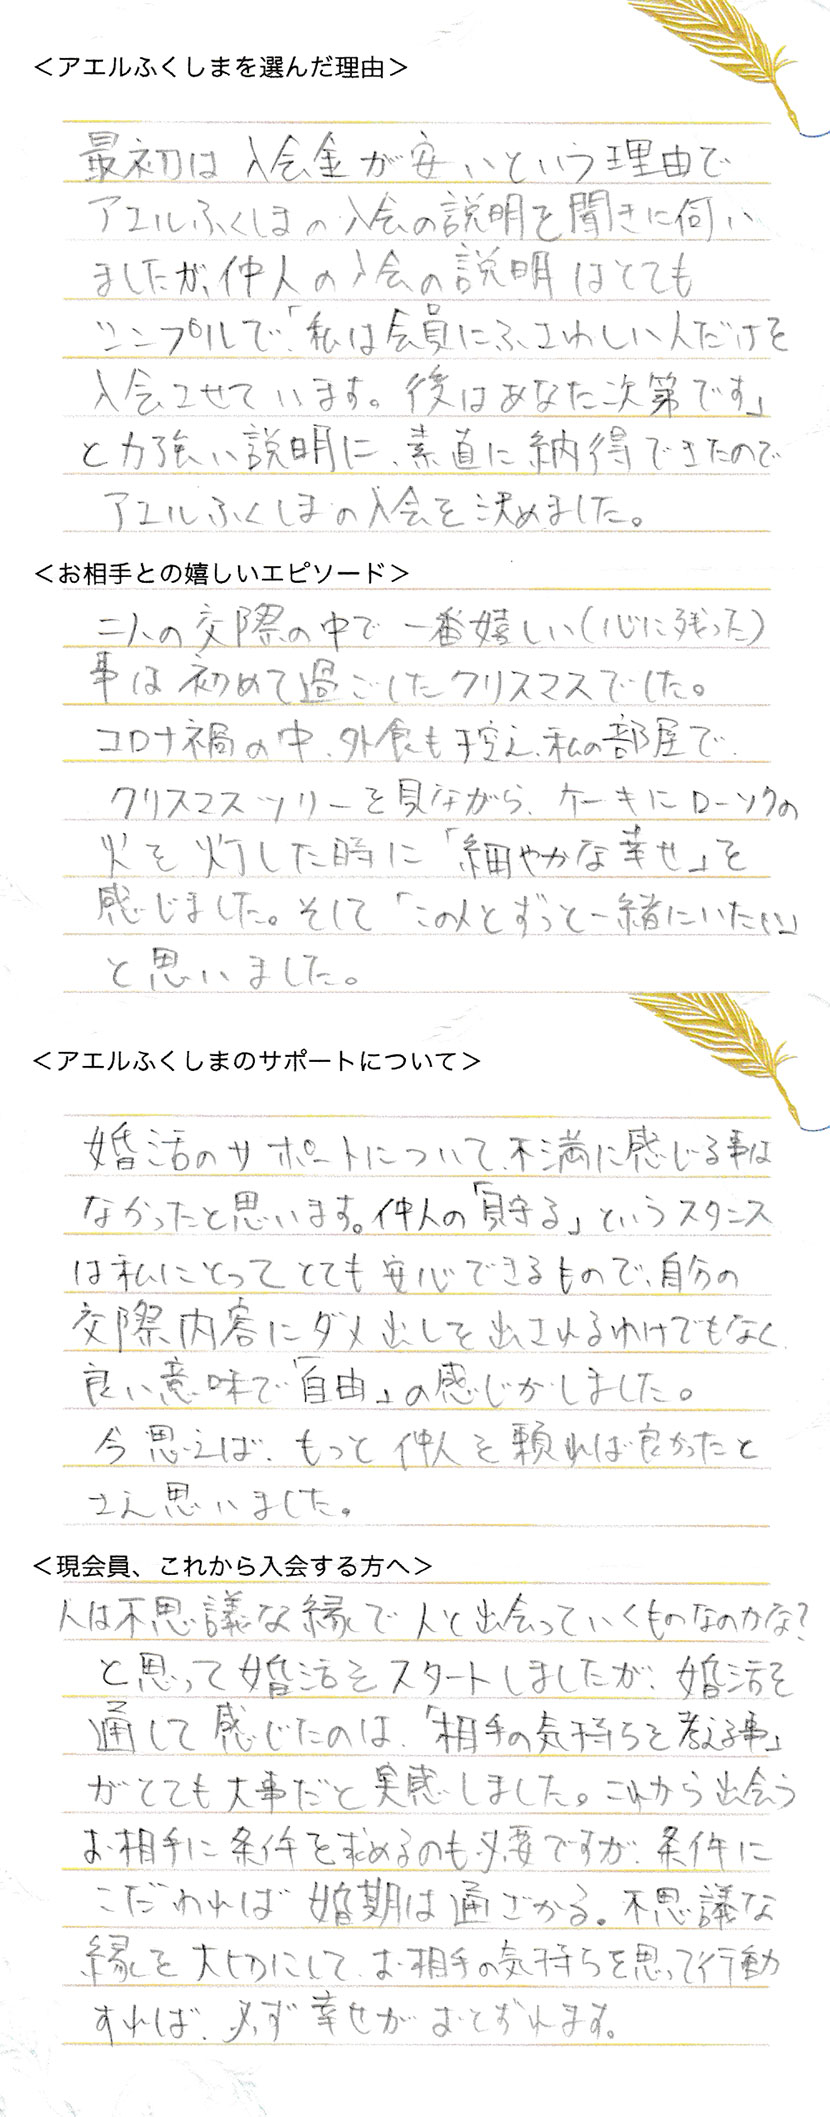 ＜アエルふくしまを選んだ理由＞
最初は入会金が安いという理由で
アエルふくしまの入会の説明を聞きに伺い
ましたが、仲人の入会の説明はとても
シンプルで、「私は会員にふさわしい人だけを
入会させています。後はあなた次第です」
と力強い説明に、素直に納得できたので
アエルふくしまの入会を決めました。
＜お相手との嬉しいエピソード＞
二人の交際の中で一番嬉しい(心に残った)
事は初めて過ごしたクリスマスでした。
コロナ禍の中、外食も控え、私の部屋で、
クリスマスツリーを見ながら、ケーキにローソクの
火を灯した時に「細やかな幸せ」を
感じました。そして「この人とずっと一緒にいたい」
と思いました。
＜アエルふくしまのサポートについて＞
婚活のサポートについて、不満に感じる事は
なかったと思います。仲人の「見守る」というスタンス
は私にとってとても安心できるもので、自分の
交際内容にダメ出しを出されるわけでもなく、
良い意味で「自由」の感じがしました。
今思えば、もっと仲人を頼れば良かったと
さえ思いました。
＜現会員、これから入会する方へ＞
人は不思議な縁で人と出会っていくものなのかな?
と思って婚活をスタートしましたが、婚活を
通して感じたのは、「相手の気持ちを考える事」
がとても大事だと実感しました。これから出会う
お相手に条件を求めるのも必要ですが、条件に
こだわれば婚期は遠ざかる。不思議な
縁を大切にして、お相手の気持ちを思って行動
すれば、必ず幸せがおとずれます。